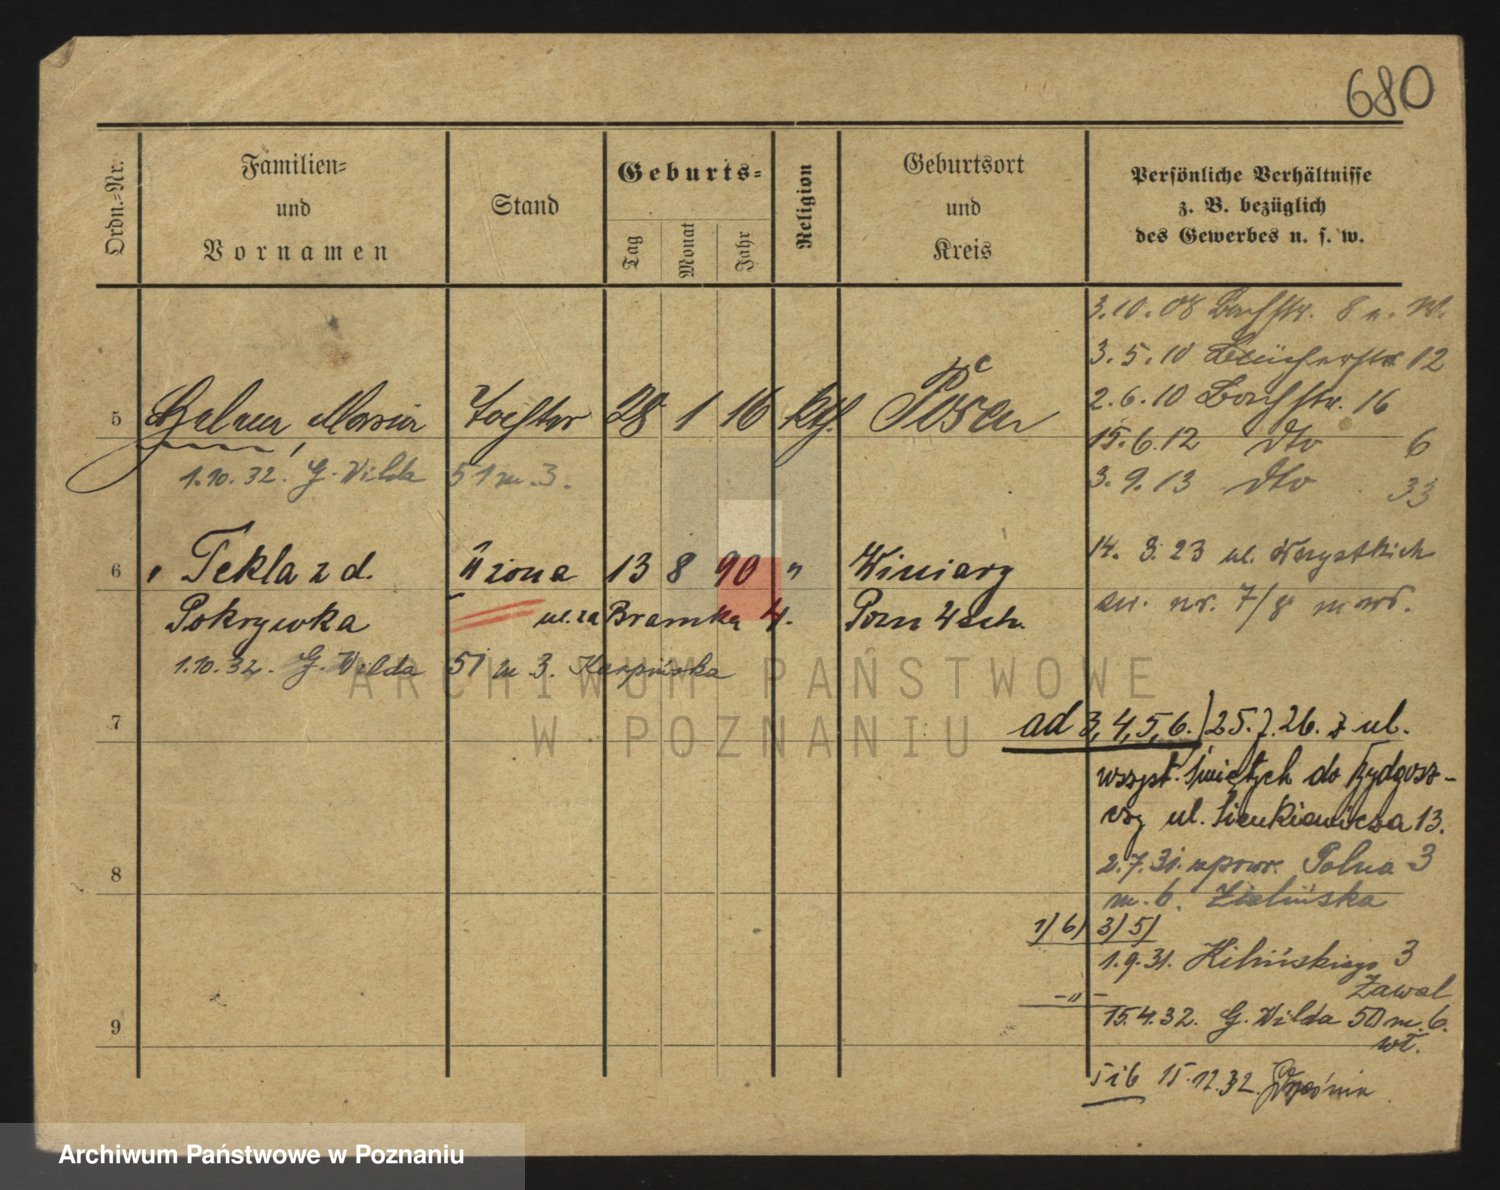 680
Ordn.-Nr.
Familien-
und
Vornamen
Stand
Geburts-
Tag
Monat
Jahr
Religion
Geburtsort
und
Kreis
Persönliche Verhältnisse
z. B. bezüglich
des Gewerbes u. s. w.
3.10.08 Bachstr. 8
3.5.10 Blücherstr 12
2.6.10 Bachstr. 16
5 Maria Tochter 28 1 16 kth. Posen
15.6.12 dto 6
1.10.32. G. Wilda 51 m. 3.
3.9.13 dto 33
14. 3. 23 ul. Wszystkich
6 " Tekla z d. II żona 13 8 90 " Winiary
św. nr. 7/8
Pokrywka ul. za Bramką 4. Pozn Wsch.
1.10.32. G. Wilda 51 m 3. Karpińska
7
ad 3, 4, 5, 6.) 25.7.26. z ul.
wszyst. świętych do Bydgosz-
czy ul. Sienkiewicza 13.
8
2.7.31. Polna 3
m. 6. Zielińska
1/ 6/ 3/ 5/
1.9.31. Kilińskiego 3
Zawal
9
-"- 15.4.32. G. Wilda 50 m. 6.
wł.
5 i 6 15.12.32. Września
ARCHIWUM PAŃSTWOWE
W POZNANIU
Archiwum Państwowe w Poznaniu